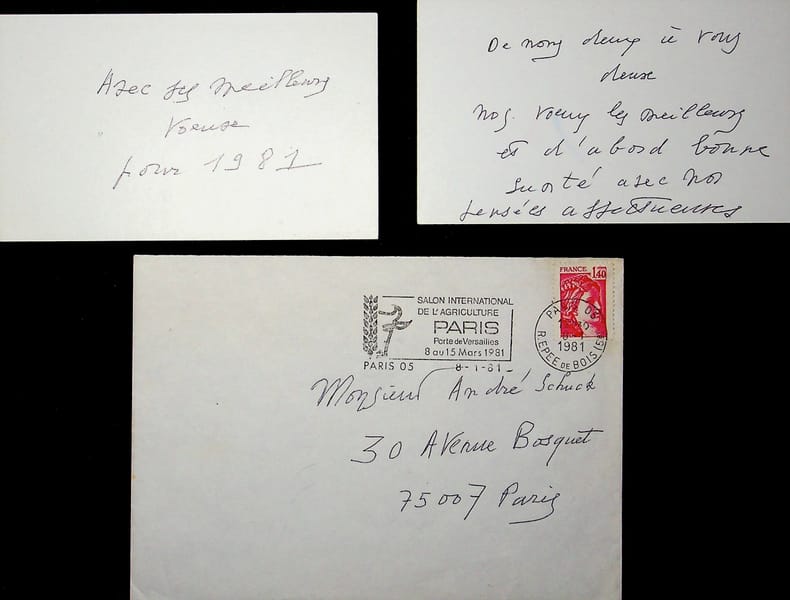 Avec ses meilleurs
voeux
pour 1981
De nous deux à vous
deux
nos voeux les meilleurs
et d'abord bonne
santé avec nos
pensées affectueuses
SALON INTERNATIONAL
DE L'AGRICULTURE
PARIS
Porte de Versailles
8 au 15 Mars 1981
PARIS 05 8-1-81
FRANCE 1,40
PARIS 05
1981
R. EPEE DE BOIS (5E)
Monsieur André Schuck
30 Avenue Bosquet
75007 Paris